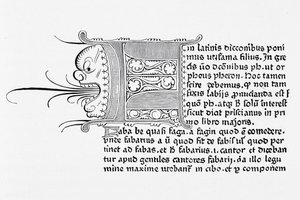 in latinis dicconibus poni
mus ut fama filius. In gre
cis ūo dcōnibus ph. ut or
pheus pheton. Noc tamen
scire debemus, q non tam
fixis labiis est f
ph. atqz solū interest
sicut dicit priscianus in pri
mo libro maioris.
Faba be quasi faga. a fagin quod ē comedere.
unde fabarius a ū quod fit de fabis ul quod per
tinet ad fabas, et fabarius. i. cantor et diceban
tur apud gentiles cantores fabarij. illo legu
mine maxime utebant in cibo. et componem